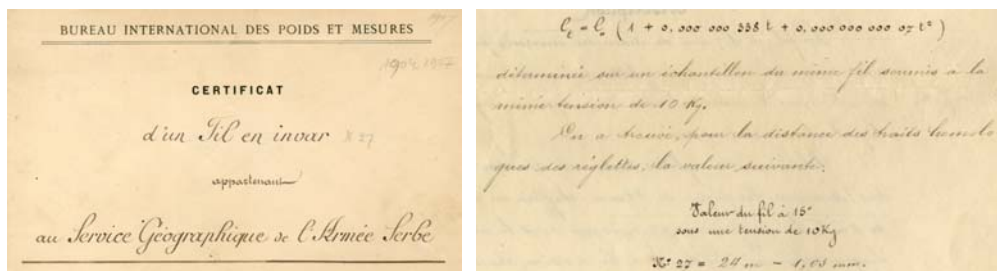 BUREAU INTERNATIONAL DES POIDS ET MESURES
1904, 1957
CERTIFICAT
d'un Fil en invar № 27
appartenant
au Service Géographique de l'Armée Serbe
ℓt = ℓ₀ (1 + 0,000 000 338 t + 0,000 000 000 07 t²)
déterminée sur un échantillon du même fil soumis à la
même tension de 10 Kg.
On a trouvé, pour la distance des traits homolo
gues des réglettes, la valeur suivante:
Valeur du fil à 15°
sous une tension de 10 Kg
№ 27 = 24 m – 1,03 mm.